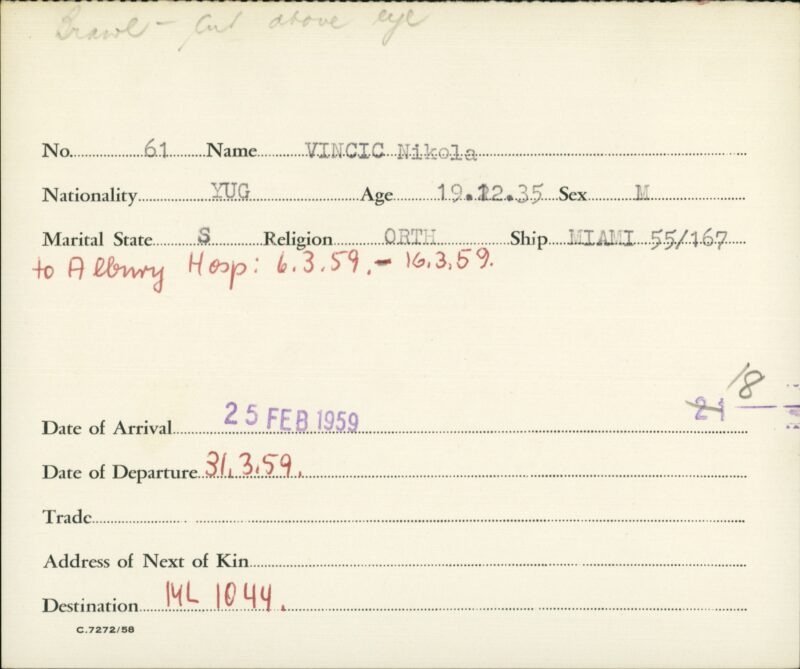 Brawl - Cut above eye
No. 61 Name VINCIC Nikola
Nationality YUG Age 19.12.35 Sex M
Marital State S Religion ORTH Ship MIAMI 55/167
to Albury Hosp: 6.3.59. - 16.3.59.
18
Date of Arrival 25 FEB 1959 21
Date of Departure 31.3.59.
Trade
Address of Next of Kin
Destination ML 1044.
C.7272/58